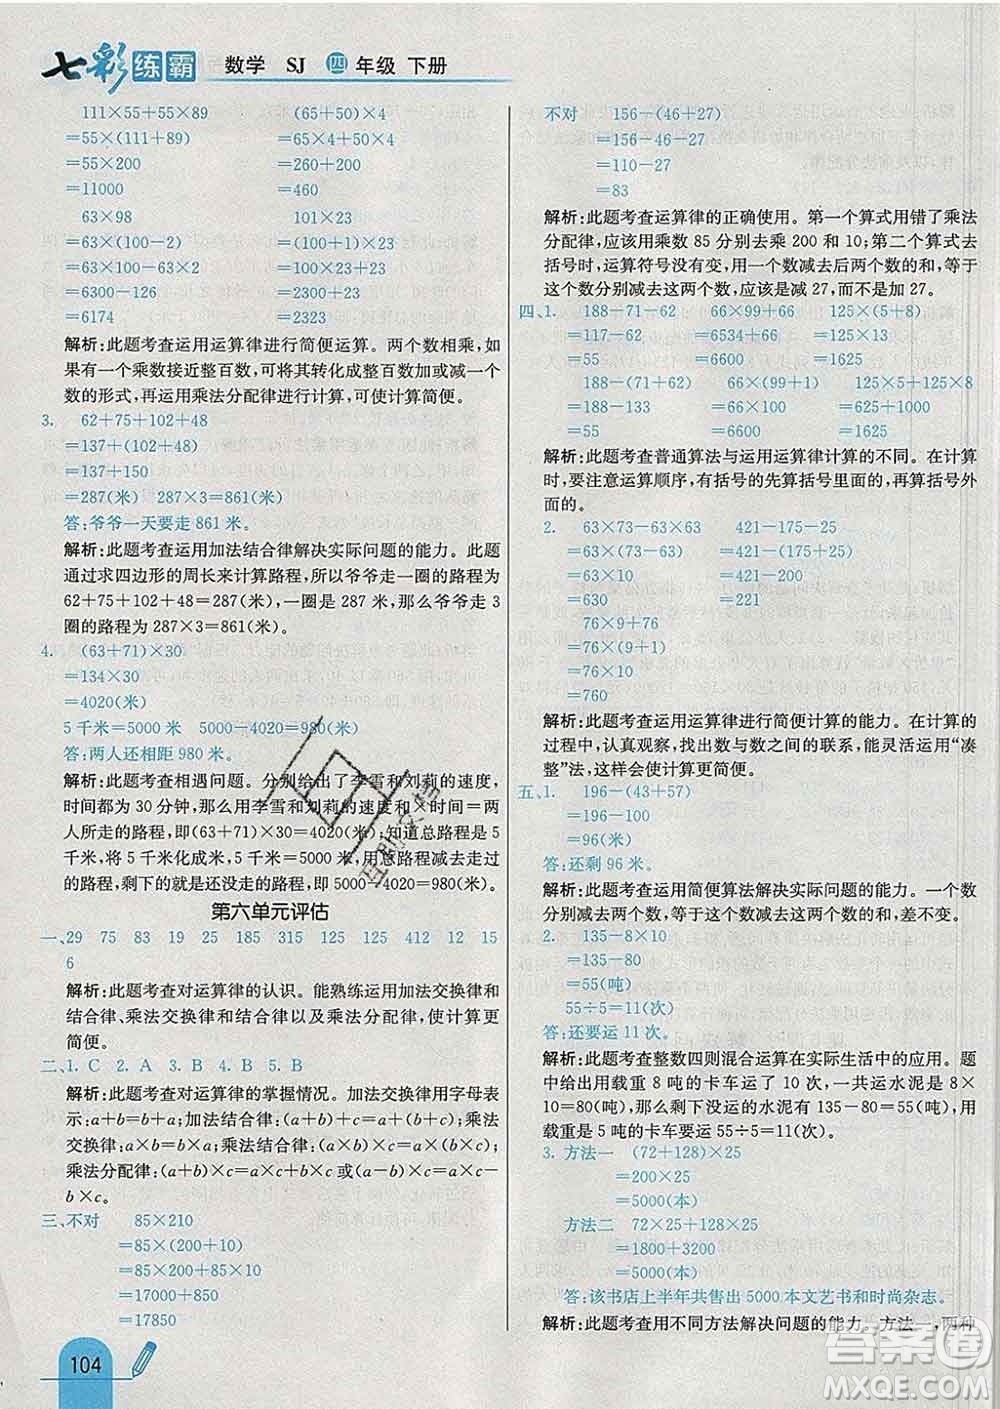 七彩练霸 数学 SJ 四年级 下册
111×55+55×89 (65+50)×4
=55×(111+89) =65×4+50×4
=55×200 =260+200
=11000 =460
63×98 101×23
=63×(100-2) =(100+1)×23
=63×100-63×2 =100×23+1×23
=6300-126 =2300+23
=6174 =2323
解析:此题考查运用运算律进行简便运算。两个数相乘,如
果有一个乘数接近整百数,可将其转化成整百数加或减一个
数的形式,再运用乘法分配律进行计算,可使计算简便。
3. 62+75+102+48
=137+(102+48)
=137+150
=287(米) 287×3=861(米)
答:爷爷一天要走 861 米。
解析:此题考查运用加法结合律解决实际问题的能力。此题
通过求四边形的周长来计算路程,所以爷爷走一圈的路程为
62+75+102+48=287(米),一天走 3 圈,那么爷爷走 3
圈的路程为 287×3=861(米)。
4. (63+71)×30
=134×30
=4020(米)
5 千米=5000 米 5000-4020=980(米)
答:两人还相距 980 米。
解析:此题考查相遇问题。分别给出了李雪和刘莉的速度,
时间为 30 分钟,那么用李雪和刘莉的速度和×时间=两
人所走的路程,即(63+71)×30=4020(米);知道总路程是 5
千米,将千米化成米,5 千米=5000 米,用总路程减去两人走
的路程,剩下的就是还没走的路程,即 5000-4020=980(米)。
第六单元评估
一、29 75 83 19 25 185 315 125 125 412 12 15
6
解析:此题考查对运算律的认识。能熟练运用加法交换律和
结合律、乘法交换律和结合律以及乘法分配律,使计算更
简便。
二、1. C 2. A 3. B 4. B 5. B
解析:此题考查对运算律的掌握情况。加法交换律用字母表
示:a+b=b+a;加法结合律:(a+b)+c=a+(b+c);乘法
交换律:a×b=b×a;乘法结合律:(a×b)×c=a×(b×c);
乘法分配律:(a+b)×c=a×c+b×c或(a-b)×c=a×c-b×c。
三、不对 85×210
=85×(200+10)
=85×200+85×10
=17000+850
=17850
104
不对 156-(46+27)
=156-46-27
=110-27
=83
解析:此题考查运算律的正确使用。第一个算式用错了乘法
分配律,应该用乘数 85 分别去乘 200 和 10;第二个算式去
括号时,运算符号没有变,用一个数减去后两个数的和,等于
这个数分别减去这两个数,应该是减 27,而不是加 27。
四、1. 188-71-62 66×99+66 125×(5+8)
=117-62 =6534+66 =125×13
=55 =6600 =1625
188-(71+62) 66×(99+1) 125×5+125×8
=188-133 =66×100 =625+1000
=55 =6600 =1625
解析:此题考查普通算法与运用运算律计算的不同。在计算
时,要注意运算顺序,有括号的先算括号里面的,再算括号外
面的。
2. 63×73-63×63 421-175-25
=63×(73-63) =421-(175+25)
=63×10 =421-200
=630 =221
76×9+76
=76×(9+1)
=76×10
=760
解析:此题考查运用运算律进行简便计算的能力。在计算的
过程中,认真观察,找出数与数之间的联系,能灵活运用“凑
整”法,这样会使计算更简便。
五、1. 196-(43+57)
=196-100
=96(米)
答:还剩 96 米。
解析:此题考查运用简便算法解决实际问题的能力。一个数
分别减去两个数,等于这个数减去这两个数的和,差不变。
2. 135-8×10
=135-80
=55(吨)
55÷5=11(次)
答:还要运 11 次。
解析:此题考查整数四则混合运算在实际生活中的应用。题
中给出用载重 8 吨的卡车运了 10 次,一共运走的水泥是 8×
10=80(吨),那么剩下没运的水泥有135-80=55(吨),再用
载重是 5 吨的卡车要运 55÷5=11(次)。
3. 方法一 (72+128)×25
=200×25
=5000(本)
方法二 72×25+128×25
=1800+3200
=5000(本)
答:该书店上半年共售出 5000 本文艺书和时尚杂志。
解析:此题考查用不同方法解决问题的能力。方法一,两种
答案圈
MXQE.COM